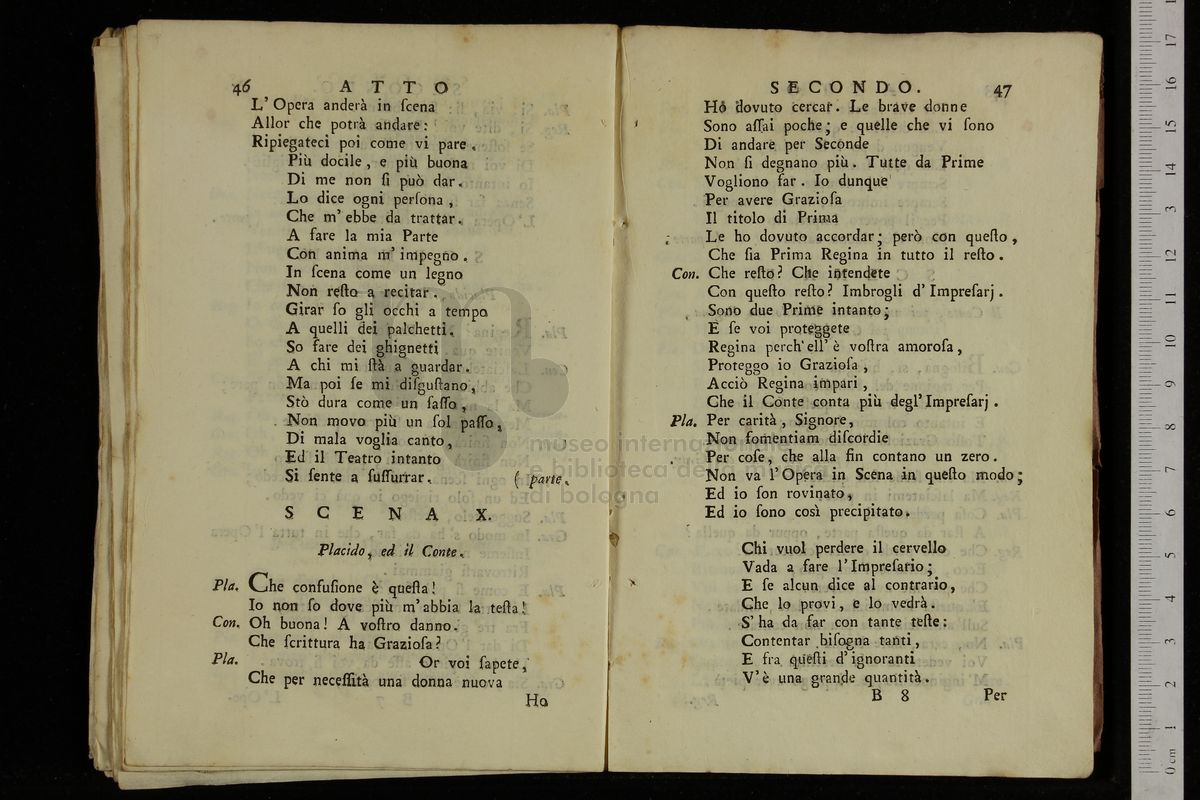 46 ATTO
L' Opera anderà in ſcena
Allor che potrà andare:
Ripiegateci poi come vi pare.
Più docile, e più buona
Di me non ſi può dar.
Lo dice ogni perſona,
Che m' ebbe da trattar.
A fare la mia Parte
Con anima m' impegno.
In ſcena come un legno
Non reſto a recitar.
Girar ſo gli occhi a tempo
A quelli dei palchetti.
So fare dei ghignetti
A chi mi ſtà a guardar.
Ma poi ſe mi diſguſtano,
Stò dura come un ſaſſo,
Non movo più un ſol paſſo,
Di mala voglia canto,
Ed il Teatro intanto
Si ſente a ſuſſurrar. ( parte.
SCENA X.
Placido, ed il Conte.
Pla. Che confuſione è queſta!
Io non ſo dove più m'abbia la teſta!
Con. Oh buona! A voſtro danno.
Che ſcrittura ha Grazioſa?
Pla. Or voi ſapete,
Che per neceſſità una donna nuova
Ho
SECONDO. 47
Ho dovuto cercar. Le brave donne
Sono aſſai poche; e quelle che vi ſono
Di andare per Seconde
Non ſi degnano più. Tutte da Prime
Vogliono far. Io dunque
Per avere Grazioſa
Il titolo di Prima
Le ho dovuto accordar; però con queſto,
Che ſia Prima Regina in tutto il reſto.
Con. Che reſto? Che intendete
Con queſto reſto? Imbrogli d' Impreſarj.
Sono due Prime intanto;
E ſe voi proteggete
Regina perch' ell' è voſtra amoroſa,
Proteggo io Grazioſa,
Acciò Regina impari,
Che il Conte conta più degl' Impreſarj.
Pla. Per carità, Signore,
Non fomentiam diſcordie
Per coſe, che alla fin contano un zero.
Non va l' Opera in Scena in queſto modo;
Ed io ſon rovinato,
Ed io ſono così precipitato.
Chi vuol perdere il cervello
Vada a fare l' Impreſario;
E ſe alcun dice al contrario,
Che lo provi, e lo vedrà.
S' ha da far con tante teſte:
Contentar biſogna tanti,
E fra queſti d' ignoranti
V' è una grande quantità.
B 8 Per
museo internazionale
e biblioteca della musica
di bologna